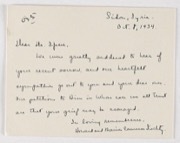 Sidon, Syria.
Oct. 8, 1934
Dear Mr. Spiers,
We were greatly saddened to hear of
your recent sorrow and our heartfelt
sympathies go out to you and your dear ones.
Our petitions to Him in Whom we all trust
are that your grief may be assuaged.
In loving remembrance,